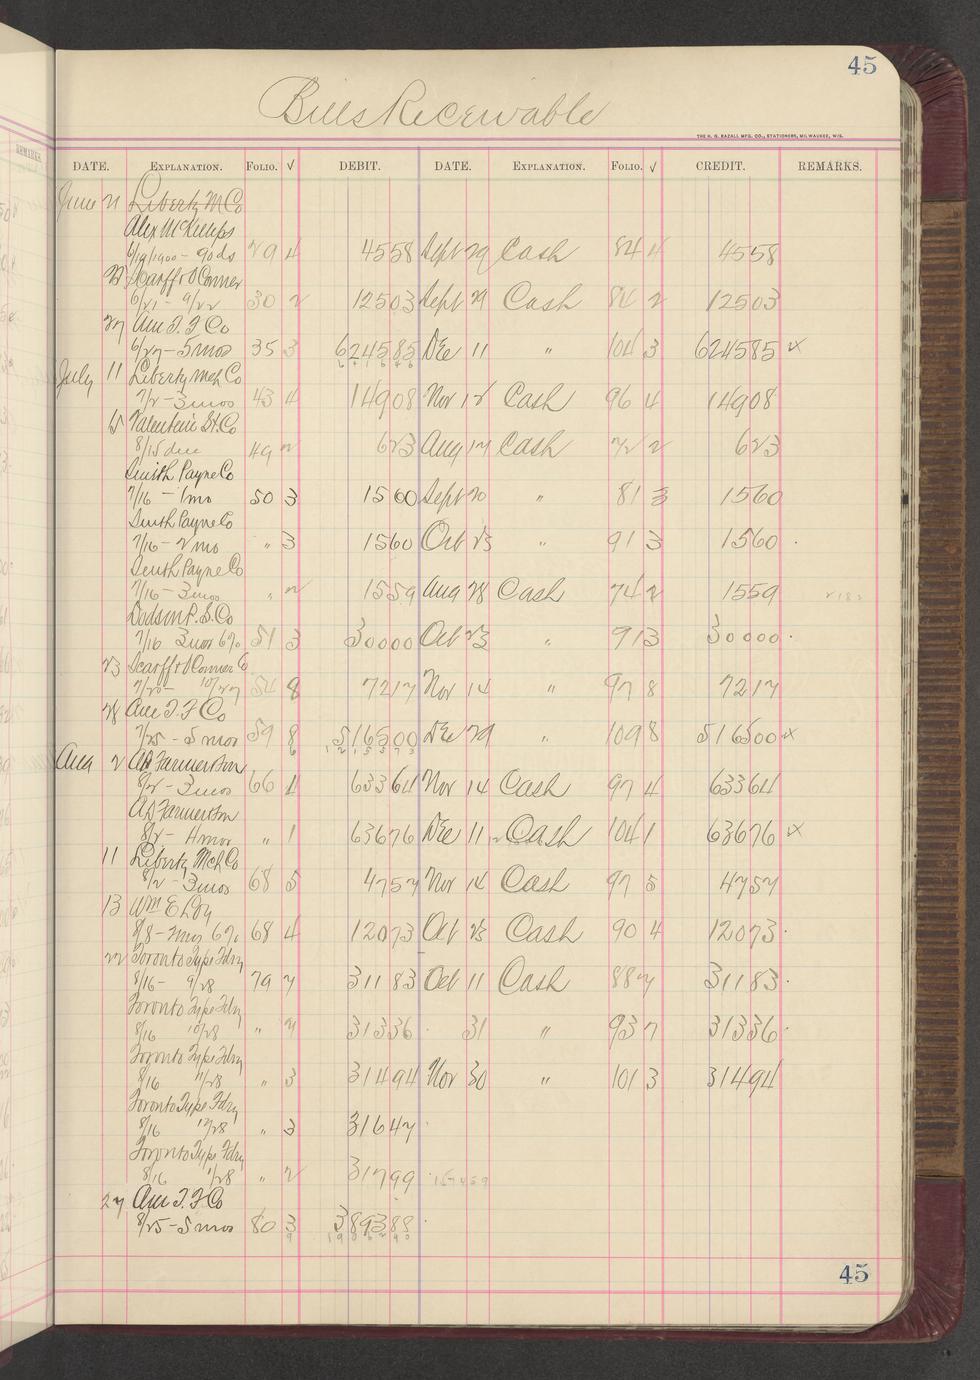 45
Bills Receivable
THE H. G. RAZALL MFG. CO., STATIONERS, MILWAUKEE, WIS.
DATE. EXPLANATION. FOLIO. √ DEBIT. DATE. EXPLANATION. FOLIO. √ CREDIT. REMARKS.
June 21 Liberty M Co
Alex McKillips
6/19/1900 - 90 ds 29 4 4558 Sept 29 Cash 84 4 4558
23 Scarff & O'Connor
6/21 - 9/22 30 2 12503 Sept 29 Cash 84 2 12503
27 Am T. F Co
6/27 - 5 mos 35 3 624585 Dec 11 " 104 3 624585 x
July 11 Liberty Mch Co
7/2 - 3 mos 43 4 14908 Nov 12 Cash 96 4 14908
15 Valentine St. Co
8/15 due 49 2 623 Aug 17 Cash 72 2 623
Smith Payne Co
7/16 - 1 mo 50 3 1560 Sept 20 " 81 3 1560
Smith Payne Co
7/16 - 2 mo " 3 1560 Oct 23 " 91 3 1560
Smith Payne Co
7/16 - 3 mos " 2 1559 Aug 28 Cash 74 2 1559
Dodson P. S. Co
7/16 3 mos 6% 51 3 30000 Oct 23 " 91 3 30000
23 Scarff & O'Connor Co
7/20 - 10/27 54 8 7217 Nov 14 " 97 8 7217
28 Am T. F Co
7/25 - 5 mos 59 8 516500 Dec 29 " 109 8 516500 x
Aug 2 AD Farmer & Son
8/2 - 3 mos 66 4 63364 Nov 14 Cash 97 4 63364
AD Farmer & Son
8/2 - 4 mos " 1 63676 Dec 11 Cash 104 1 63676 x
11 Liberty Mch Co
8/2 - 3 mos 68 5 4757 Nov 14 Cash 97 5 4757
13 Wm E
8/8 - 6% 68 4 12073 Oct 23 Cash 90 4 12073
22 Toronto Type Fdry
8/16 - 9/28 79 7 31183 Oct 11 Cash 88 7 31183
Toronto Type Fdry
8/16 10/28 " 7 31336 31 " 93 7 31336
Toronto Type Fdry
8/16 11/28 " 3 31494 Nov 30 " 101 3 31494
Toronto Type Fdry
8/16 12/28 " 3 31647
Toronto Type Fdry
8/16 1/28 " 2 31799
27 Am T. F Co
8/25 - 5 mos 80 3 389388
45